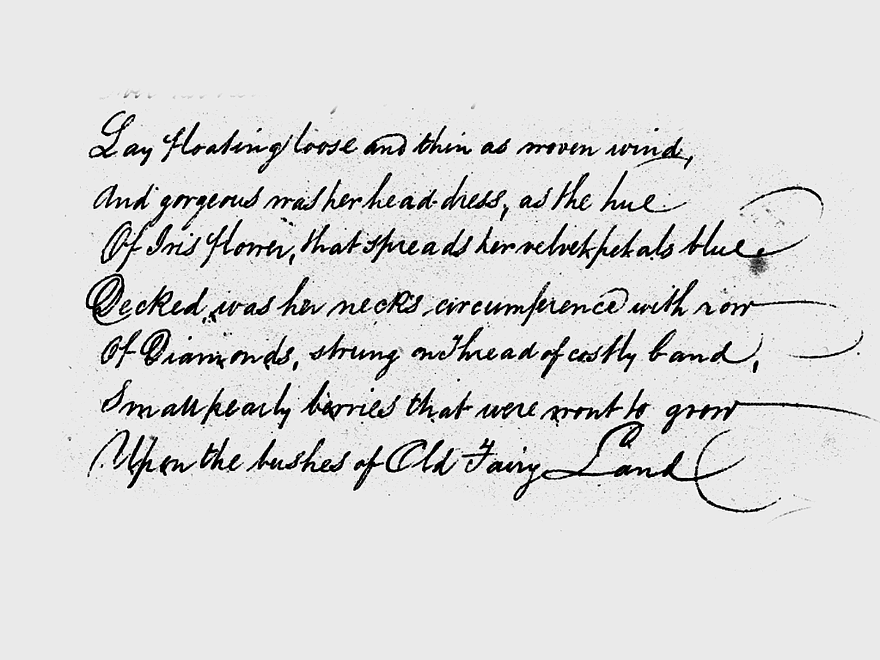 Lay floating loose and thin as woven wind,
And gorgeous was her head-dress, as the hue
Of Iris flower, that spreads her velvet petals blue.
Decked was her neck's circumference with row
Of Diamonds, strung on thread of costly band,
Small pearly berries that were wont to grow
Upon the bushes of Old Fairy Land